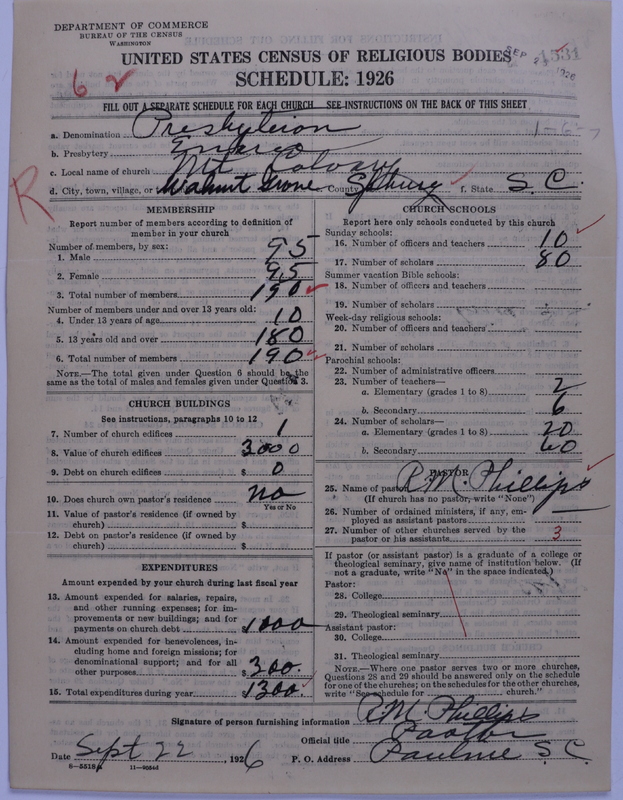 DEPARTMENT OF COMMERCE
BUREAU OF THE CENSUS
WASHINGTON
UNITED STATES CENSUS OF RELIGIOUS BODIES
SCHEDULE: 1926
FILL OUT A SEPARATE SCHEDULE FOR EACH CHURCH SEE INSTRUCTIONS ON THE BACK OF THIS SHEET
a. Denomination Presbyterian
b. Presbytery Enoree
c. Local name of church Mt. Calvary
d. City, town, village, or Walnut Grove County Spburg f. State S. C.
R
MEMBERSHIP
Report number of members according to definition of
member in your church
Number of members, by sex:
1. Male 95
2. Female 95
3. Total number of members 190
Number of members under and over 13 years old:
4. Under 13 years of age 10
5. 13 years old and over 180
6. Total number of members 190
NOTE.—The total given under Question 6 should be the
same as the total of males and females given under Question 3.
CHURCH BUILDINGS
See instructions, paragraphs 10 to 12
7. Number of church edifices 1
8. Value of church edifices $ 3000
9. Debt on church edifices $ 0
10. Does church own pastor's residence no
Yes or No
11. Value of pastor's residence (if owned by
church) $
12. Debt on pastor's residence (if owned by
church) $
EXPENDITURES
Amount expended by your church during last fiscal year
13. Amount expended for salaries, repairs,
and other running expenses; for im-
provements or new buildings; and for
payments on church debt $ 1000
14. Amount expended for benevolences, in-
cluding home and foreign missions; for
denominational support; and for all
other purposes $ 300.
15. Total expenditures during year $ 1300.
CHURCH SCHOOLS
Report here only schools conducted by this church
Sunday schools:
16. Number of officers and teachers 10
17. Number of scholars 80
Summer vacation Bible schools:
18. Number of officers and teachers
19. Number of scholars
Week-day religious schools:
20. Number of officers and teachers
21. Number of scholars
Parochial schools:
22. Number of administrative officers
23. Number of teachers—
a. Elementary (grades 1 to 8) 2
b. Secondary 6
24. Number of scholars—
a. Elementary (grades 1 to 8) 20
b. Secondary 60
PASTOR
25. Name of pastor R. M. Phillips
(If church has no pastor, write "None")
26. Number of ordained ministers, if any, em-
ployed as assistant pastors
27. Number of other churches served by the
pastor or his assistants 3
If pastor (or assistant pastor) is a graduate of a college or
theological seminary, give name of institution below. (If
not a graduate, write "No" in the space indicated.)
Pastor:
28. College
29. Theological seminary
Assistant pastor:
30. College
31. Theological seminary
NOTE.—Where one pastor serves two or more churches,
Questions 28 and 29 should be answered only on the schedule
for one of the churches; on the schedules for the other churches,
write "See schedule for church."
Signature of person furnishing information R. M. Phillips
Official title Pastor
Date Sept 22, 1926 P. O. Address Pauline S. C.